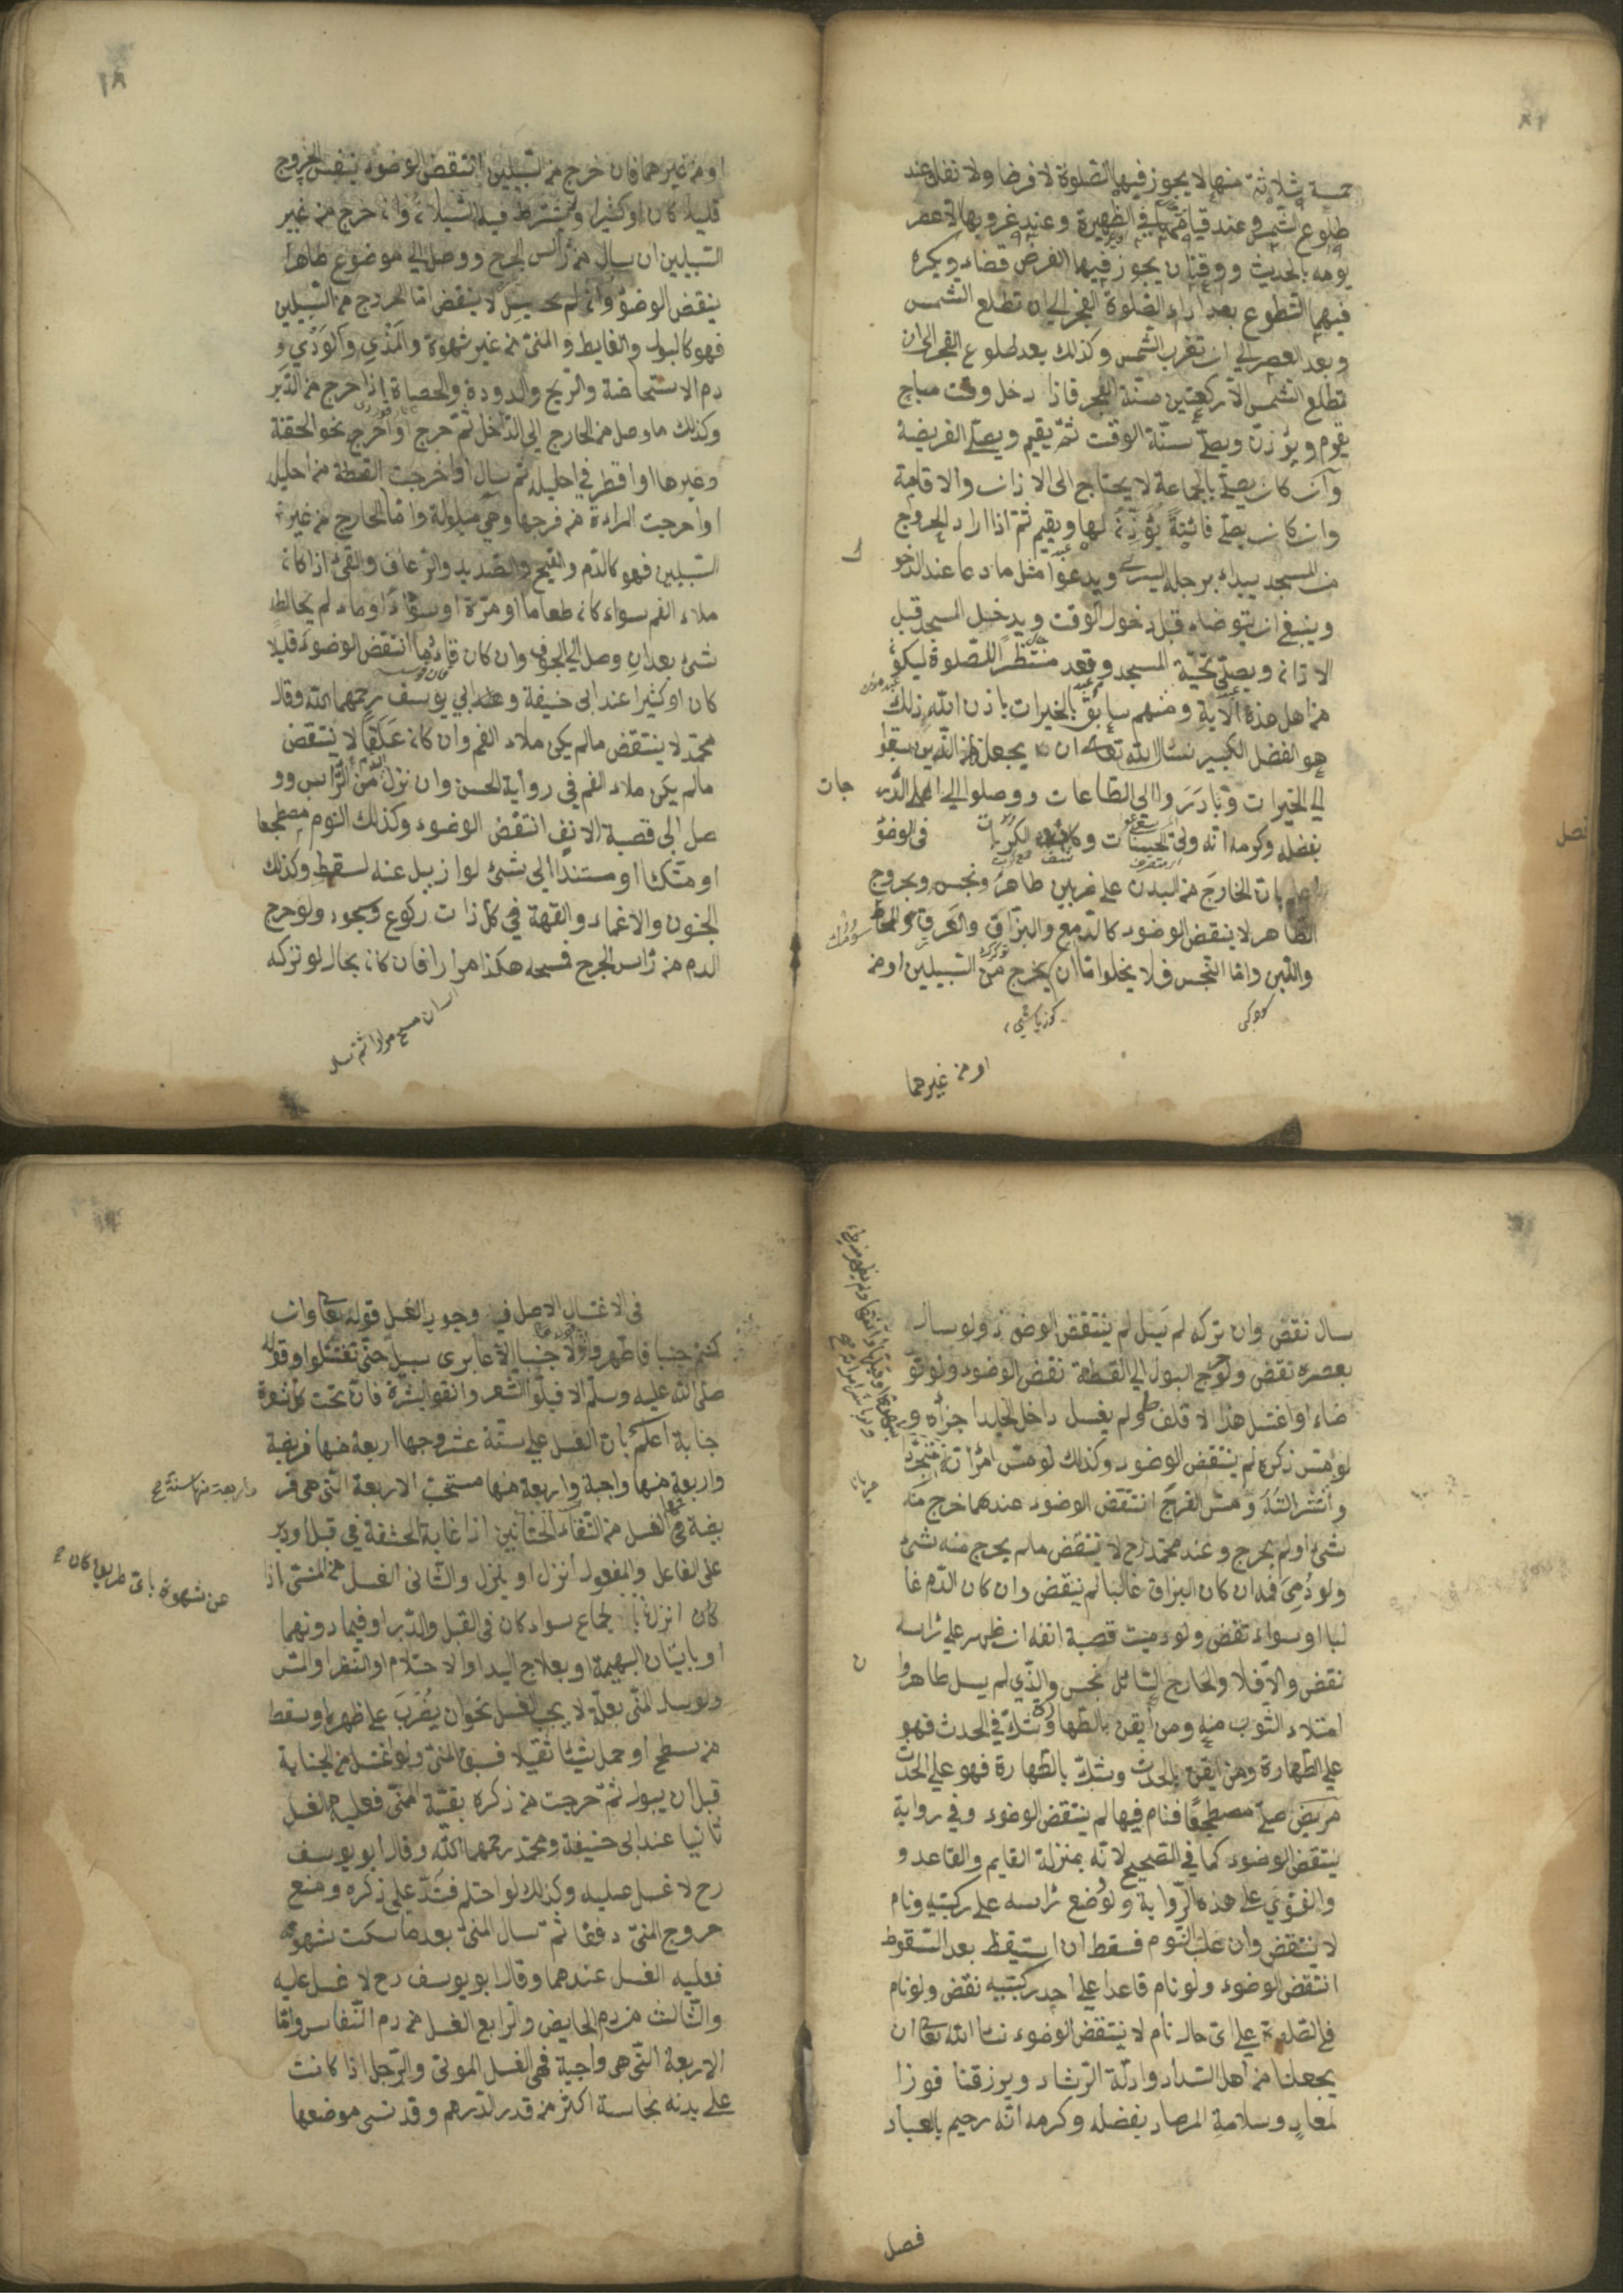 خمسة ثلاثة منها لا يجوز فيها الصلوة لا فرضا ولا نفلا عند
طلوع الشمس وعند قيامها في الظهيرة وعند غروبها الا عصر
يومه بالحديث ووقتان يجوز فيها الفرض قضاء ويكره
فيهما التطوع بعد اداء الصلوة الفجر الى ان تطلع الشمس
وبعد العصر الى ان تغرب الشمس وكذلك بعد طلوع الفجر الى ان
تطلع الشمس الا ركعتين سنة الفجر فاذا دخل وقت مباح
يقوم ويؤذن ويصلي سنة الوقت ثم يقيم ويصلي الفريضة
وان كان يصلي بالجماعة لا يحتاج الى الاذان والاقامة
وان كان يصلي فائتة يؤذن لها ويقيم ثم اذا اراد الخروج
من المسجد يبداء برجله اليسرى ويدعوا مثل ما دعا عند الدخو
ل
وينبغي ان يتوضاء قبل دخول الوقت ويدخل المسجد قبل
الاذان ويصلي تحية المسجد وقعد منتظرا للصلوة ليكون
من اهل هذه الآية ومنهم سابق بالخيرات باذن الله ذلك
هو الفضل الكبير نسئل الله تعالى ان يجعلنا من الذين سبقوا
الى الخيرات وبادروا الى الطاعات ووصلوا الى اعلى الدر
جات
بفضله وكرمه انه ولي الحسنات وكاشف الكربات في الوضوء
فصل
اعلم بان الخارج من البدن على ضربين طاهر ونجس وبخروج
الطاهر لا ينقض الوضوء كالدمع والبزاق والعرق والمخاط
واللبن واما النجس فلا يخلوا اما ان يخرج من السبيلين او من
او من غيرهما
١٨
او من غيرهما فان خرج من السبيلين انتقض الوضوء بنفس الخروج
قليلا كان او كثيرا ولا يشترط فيه السيلان وان خرج من غير
السبيلين ان سال من رأس الجرح ووصل الى موضوع طاهر
ينقض الوضوء وان لم يسيل لا ينقض اما الخروج من السبيلين
فهو كالبول والغايط والمني من غير شهوة والمذي والودي و
دم الاستحاضة والريح والدودة والحصاة اذا خرج من الدبر
وكذلك ما وصل من الخارج الى الداخل ثم خرج او اخرج نحو الحقنة
وغيرها او اقطر في احليله ثم سال او اخرجت القطة من احليله
او اخرجت المراءة من فرجها وهي مبلولة واما الخارج من غير
السبيلين فهو كالدم والقيح والصديد والرعاف والقئ اذا كان
ملاء الفم سواء كان طعاما او مرة او سوادا او ماء لم يخالطه
شئ بعد ان وصل الى الجوف وان كان قاء دما انتقض الوضوء قليلا
كان او كثيرا عند ابي حنيفة وعند ابي يوسف رحمهما الله وقال
محمد لا ينتقض مالم يكن ملاء الفم وان كان علقا لا ينتقض
مالم يكن ملاء الفم في رواية الحسن وان نزل من الرأس وو
صل الى قصبة الانف انتقض الوضوء وكذلك النوم مضطجعا
او متكئا او مستندا الى شئ لو ازيل عنه لسقط وكذلك
الجنون والاغماء والقهقهة في كل ذات ركوع وسجود ولو خرج
الدم من رأس الجرح فمسحه هكذا مرارا فان كان بحال لو تركه
سال نقض وان تركه لم يسل لم ينتقض الوضوء ولو سال
بعصره نقض ولو خرج البول الى القطة نقض الوضوء ولو تو
ضاء او اغتسل هذا الاقلف ولم يغسل داخل الجلد اجزاه و
لو مس ذكره لم ينتقض الوضوء وكذلك لو مس امرأته متجردا
وانتشر الته ومس الفرج انتقض الوضوء عندهما خرج منه
شئ او لم يخرج وعند محمد رح لا تنتقض مالم يخرج منه شئ
ولو دمي فمه ان كان البزاق غالبا لم ينقض وان كان الدم غا
لبا او سواء نقض ولو دميت قصبة انفه ان ظهر على رأسه
نقض والا فلا والخارج السائل نجس والذي لم يسل طاهر وا
ن
امتلاء الثوب منه ومن ايقن بالطهارة وشك في الحدث فهو
على الطهارة ومن ايقن بالحدث وشك بالطهارة فهو على الحدث
مريض صلى مضطجعا فنام فيها لم ينتقض الوضوء وفي رواية
ينتقض الوضوء كما في الصحيح لانه بمنزلة القايم والقاعد و
والفتوى على هذه الرواية ولو وضع رأسه على ركبتيه ونام
لا ينتقض وان غلب النوم فسقط ان استيقظ بعد السقوط
انتقض الوضوء ولو نام قاعدا على احد ركبتيه نقض ولو نام
في الصلوة على اي حال نام لا ينتقض الوضوء نسئل الله تعالى ان
يجعلنا من اهل السداد وادلة الرشاد ويرزقنا فوزا
لمعاد وسلامة المرصاد بفضله وكرمه انه رحيم بالعباد
فصل
في الاغتسال الاصل في وجوب الغسل قوله تعالى وان
كنتم جنبا فاطهروا ولا جنبا الا عابري سبيل حتى تغتسلوا وقوله
صلى الله عليه وسلم الا فبلوا الشعر وانقوا البشرة فان تحت كل شعرة
جنابة اعلم بان الغسل على ستة عشر وجها اربعة منها فريضة
واربعة منها واجبة واربعة منها مستحب الاربعة التي هي فر
واربعة منها سنة صح
يضة فهي الغسل من التقاء الختانين اذا غابة الحشفة في قبل او دبر
على الفاعل والمفعول انزل او لم ينزل والثاني الغسل من المني اذا
عن شهوة باى طريق كان صح
كان انزل بالجماع سواء كان في القبل والدبر او فيما دونهما
او باتيان البهيمة او بعلاج اليد او الاحتلام او النظر او المس
ولو سال المني بعلة لا يجب الغسل نحو ان يضرب على ظهره او سقط
من سطح او حمل شيئا ثقيلا فسبق المني ولو اغتسل من الجنابة
قبل ان يبول ثم خرجت من ذكره بقية المني فعليه الغسل
ثانيا عند ابي حنيفة ومحمد رحمهما الله وقال ابو يوسف
رح لا غسل عليه وكذلك لو احتلم فشد على ذكره ومنع
خروج المني دفقا ثم سال المني بعد ما سكنت شهوته
فعليه الغسل عندهما وقال ابو يوسف رح لا غسل عليه
والثالث من دم الحايض والرابع الغسل من دم النفاس واما
الاربعة التي هي واجبة فهي الغسل الموتى والرجل اذا كانت
على بدنه نجاسة اكثر من قدر الدرهم وقد نسي موضعها